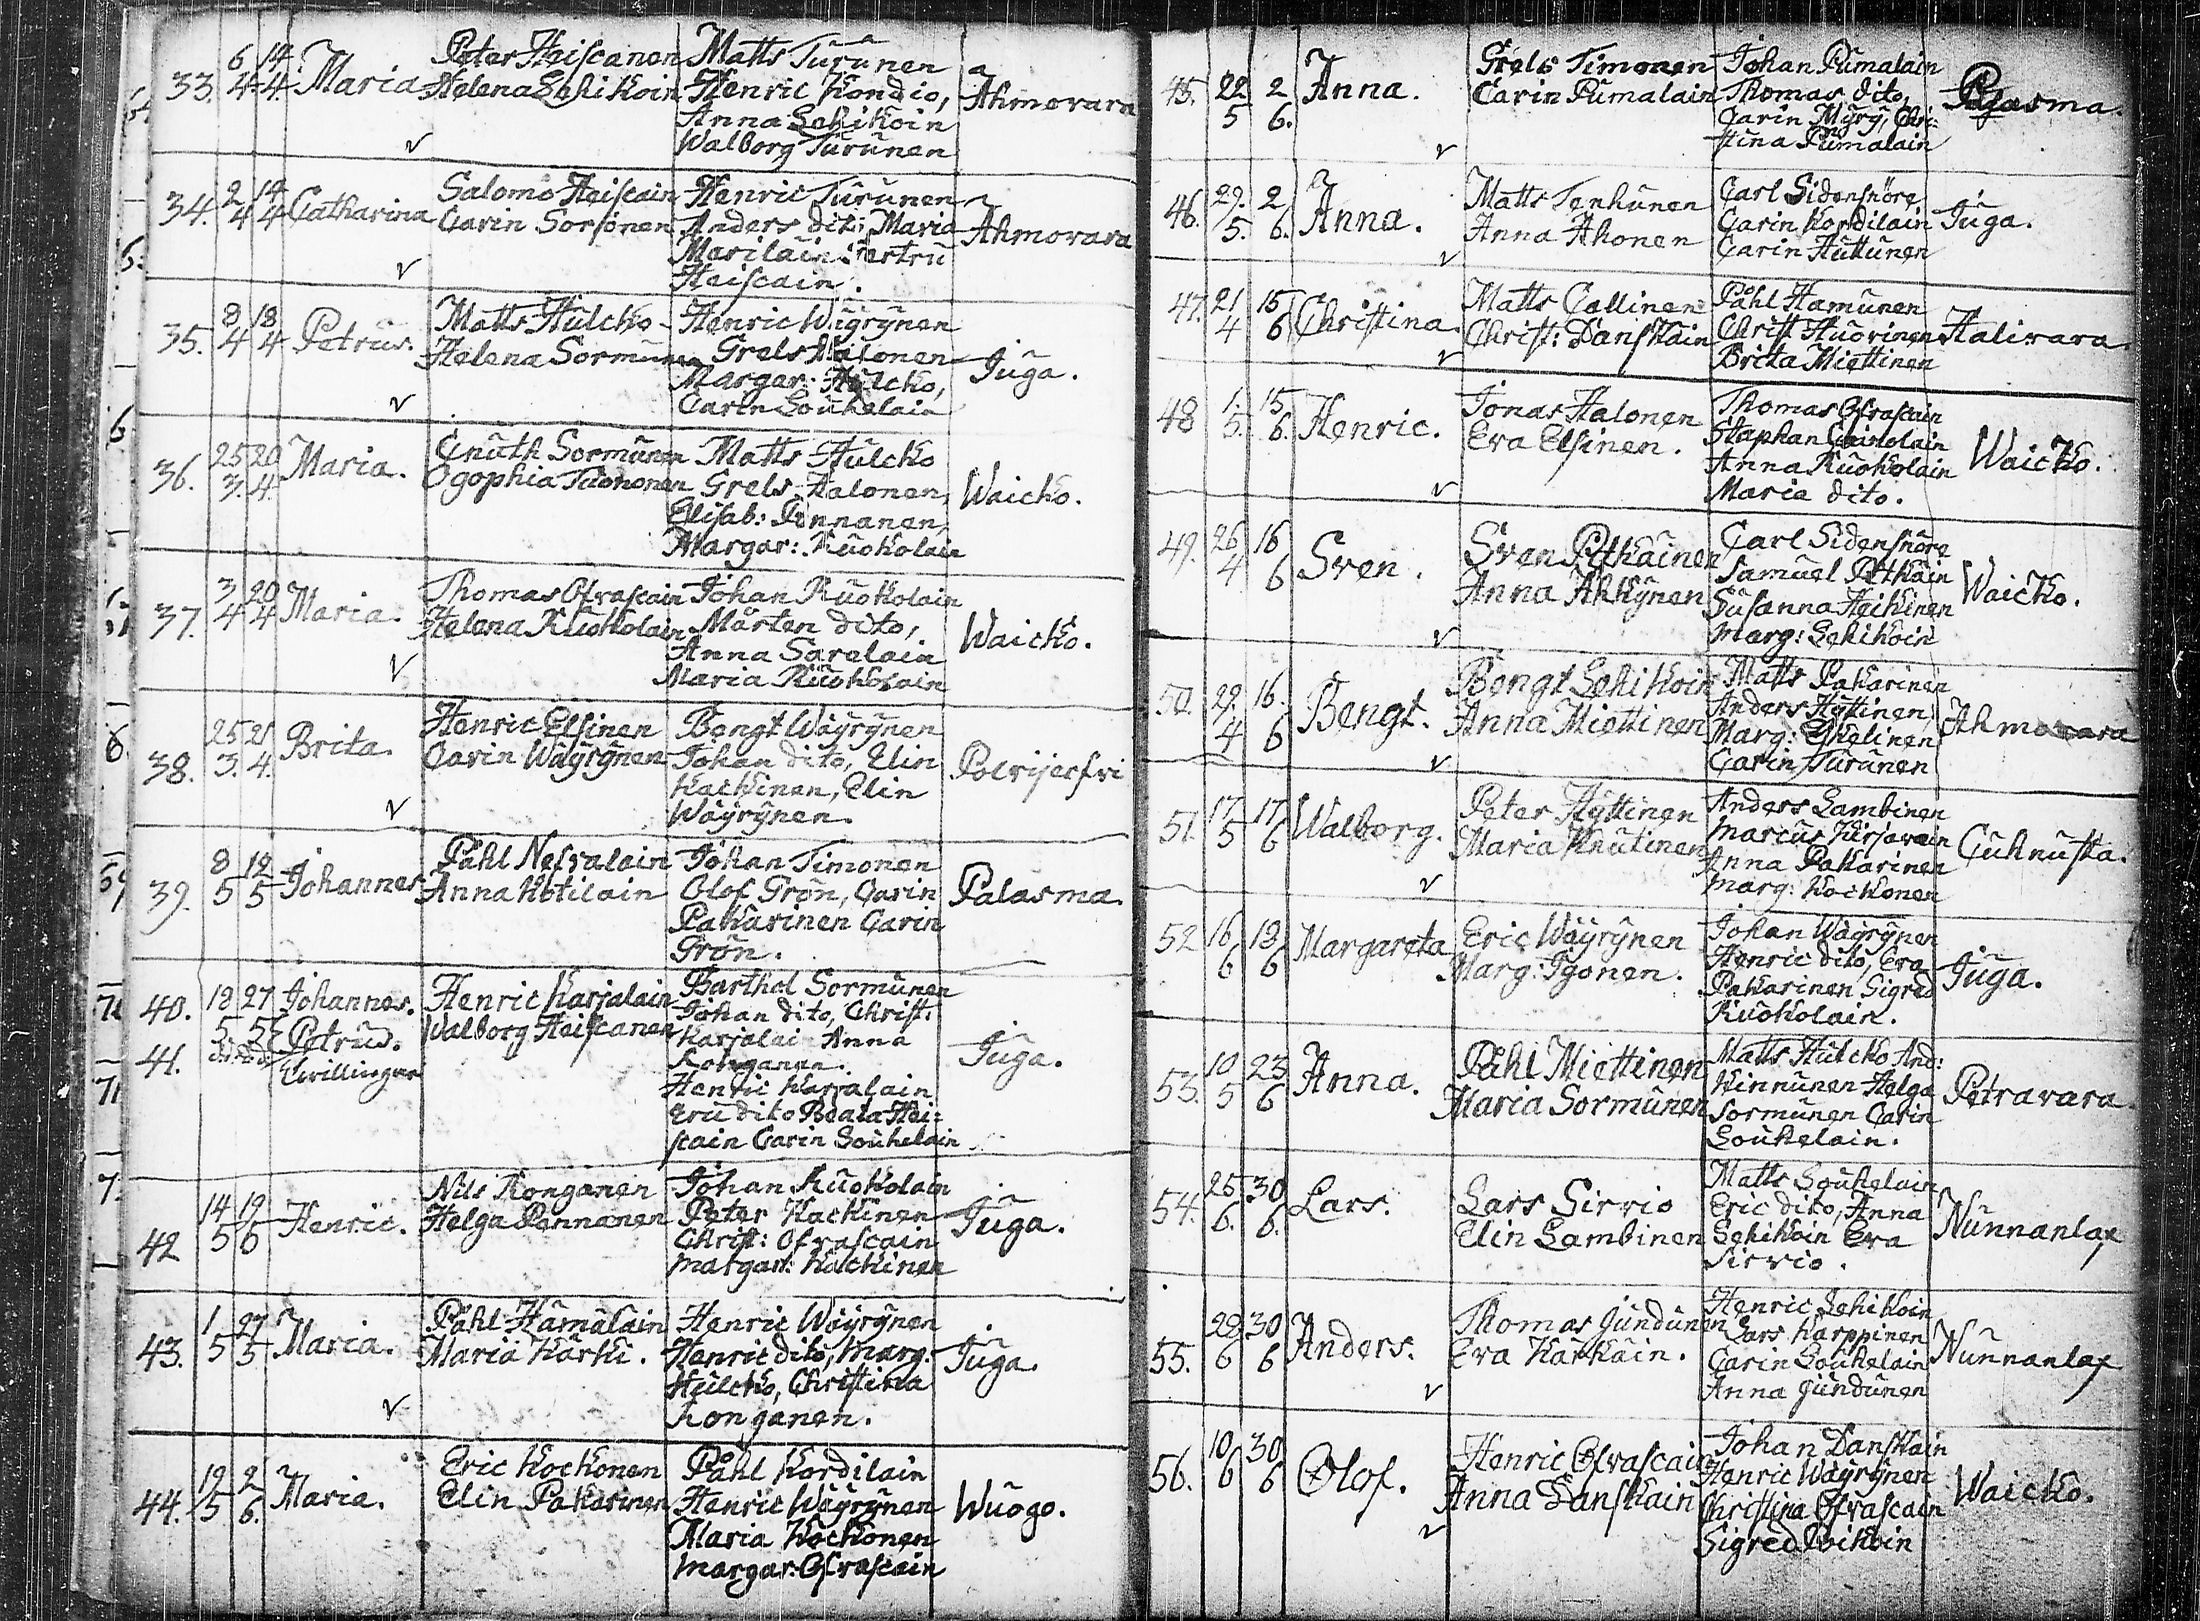 33. 6/4 14/4 Maria Peter Heiscanen Matts Turunen
Helena Lehikoin Henric Kondio, Ahmovara
Anna Lehikoin
Walborg Turunen
34. 2/4 14/4 Catharina Salomo Heiscain Henric Turunen
Carin Sorsonen Anders dito; Maria Ahmovara
Marilain
Heiscain.
35. 8/4 18/4 Petrus. Matts Hulcko Henric Wäyrynen
Helena Sormunen Grels Halonen
Margar: Hulcko, Juga.
Carin Souhelain
36. 25/3 20/4 Maria. Cnuth Sormunen Matts Hulcko
Ogophia Grels Halonen, Waicko.
Elisab: Pennanen,
Margar: Kuokolain
37. 3/4 20/4 Maria. Thomas Ofvascain Johan Kuokolain
Helena Kuokolain Mårten dito, Waicko.
Anna Savolain
Maria Kuokolain
38. 25/3 21/4 Brita. Henric Elfinen Bengt Wäyrynen
Carin Wäyrynen Johan dito, Elin
Kackinen, Elin
Wäyrynen.
39. 8/5 12/5 Johannes Påhl Nefvalain Johan Timonen
Anna Kotilain Olof Grön, Carin Palasma.
Pakarinen Carin
Grön.
40. 18/5 27/5 Johannes. Henric Karjalain Barthol Sormunen
41. Petrus. Walborg Heiscanen Johan dito, Christ:
Twillingar Karjalain Anna Juga.
Konganen.
Henric Karjalain
dito Beata Hei-
scain Carin Souhelain
42 14/5 Henric. Nils Konganen Johan Kuokolain
Helga Pennanen Peter Kackinen Juga.
Christ: Ofvascain
Margar: Kackinen
43. 1/5 27/5 Maria. Påhl Hämälain Henric Wäyrynen
Maria Karki. Henric dito, Marg: Juga.
Hulcko, Christina
Konganen.
44. 19/5 2/6. Maria. Eric Kockonen Påhl Kordilain
Elin Pakarinen Henric Wäyrynen Wuogo.
Maria Kockonen
Margar: Ofvascain
45. 22/5 2/6. Anna. Grels Timonen Johan Pumalain
Carin Pumalain Thomas dito, Palasma.
Carin Myry, Chri-
stina Pumalain
46. 29/5. 2/6. Anna. Matts Tenhunen Carl Sidensnöre
Anna Ahonen Carin Kordilain Juga.
Carin Huttunen
47. 21/4 15/6 Christina. Matts Callinen Påhl Hamunen
Christ: Danskain Christ Huovinen Halivara.
Brita Miettinen
48 1/5. 15/6. Henric. Jonas Halonen Thomas Ofvascain
Eva Elfinen. Staphan
Anna Kuokolain Waicko.
Maria dito.
49. 26/4 16/6 Sven. Sven Pitkäinen Carl Sidensnöre
Anna Ahkynen Samuel Pitkäin Waicko.
Susanna Heikinen
Marg: Lehikoin
50. 29/4 16./6 Bengt. Bengt Lehikoin Matts Pakarinen
Anna Miettinen Anders Hyttinen, Ahmovara
Marg:
Carin Turunen
51. 17/5 17/6 Walborg. Peter Hyttinen Anders Lambinen
Maria Knutinen Marcus Cuhnusta.
Anna Pakarinen
Marg: Kockonen
52 16/6 18/6 Margareta Eric Wäyrynen Johan Wäyrynen
Marg: Igonen. Henric dito, Eva Juga.
Pakarinen Sigred
Kuokolain.
53. 10/5 23/6 Anna. Påhl Miettinen Matts Hulcko And:
Maria Sormunen Kinnunen Helga Petravara.
Sormunen Carin
Souhelain.
54. 25/6. 30/6. Lars. Lars Sirvio Matts Souhelain
Elin Lambinen Eric dito, Anna Nunnanlax
Lehikoin Eva
Sirvio.
55. 22/6 30/6 Anders. Thomas Jundunen Henric Lehikoin
Eva Karkäin. Lars Karppinen Nunnanlax
Carin Souhelain
Anna Jundunen
56. 10/6 30/6 Olof. Henric Ofvascain Johan Danskain
Anna Danskain Henric Wäyrynen Waicko.
Christina Ofvascain
Sigred